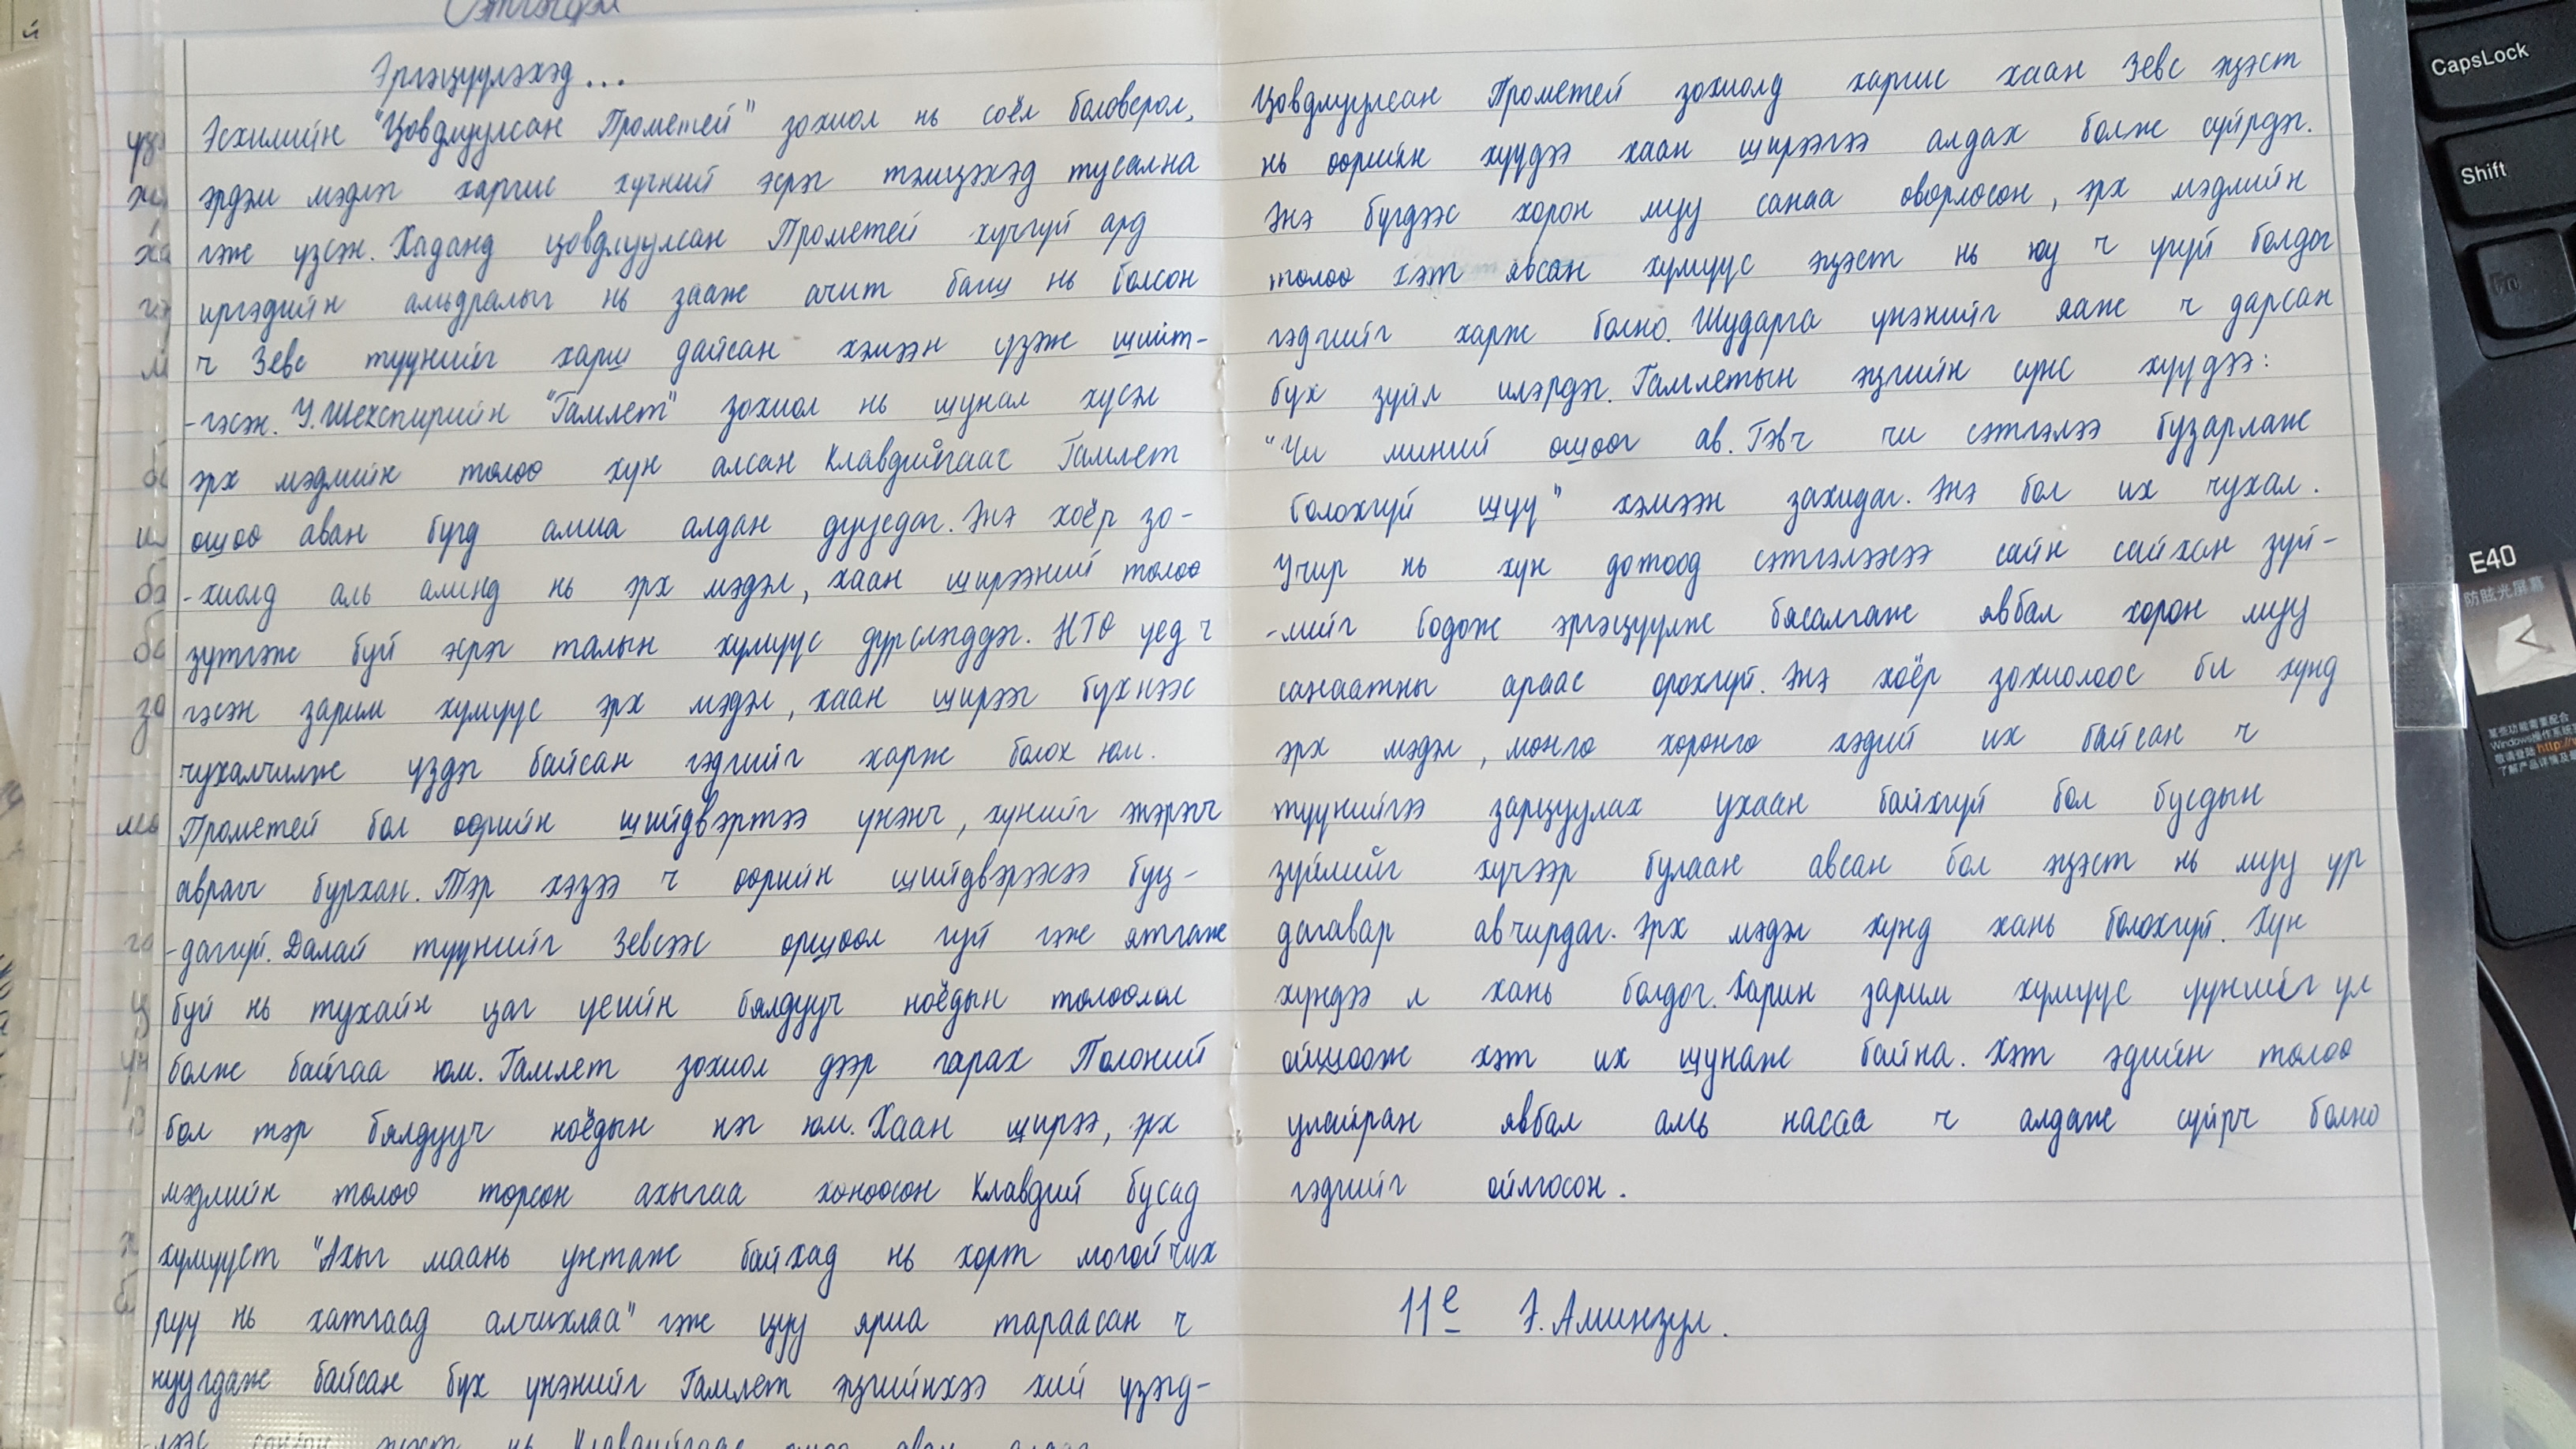 Эргэцүүлэхэд...
Эсхилийн "Цовдлуулсан Прометей" зохиол нь соёл боловсрол,
эрдэм мэдлэг харгис хүчний эсрэг тэмцэхэд тусална
гэж үзсэн. Хаданд цовдлуулсан Прометей хүчгүй ард
иргэдийн амьдралыг нь зааж ачит багш нь болсон
ч Зевс түүнийг харш дайсан хэмээн үзэж шийт-
-гэсэн. У.Шекспирийн "Гамлет" зохиол нь шунал хүсэл
эрх мэдлийн төлөө хүн алсан Клавдийгаас Гамлет
өшөө аван бүгд амиа алдан дуусдаг. Энэ хоёр зо-
-хиолд аль алинд нь эрх мэдэл, хаан ширээний төлөө
зүтгэж буй эсрэг талын хүмүүс дүрслэгддэг. НТӨ үед ч
гэсэн зарим хүмүүс эрх мэдэл, хаан ширээг бүхнээс
чухалчилж үздэг байсан гэдгийг харж болох юм.
Прометей бол өөрийн шийдвэртээ үнэнч, хүнийг энэрэнгүй
аврагч бурхан. Тэр хэзээ ч өөрийн шийдвэрээсээ буц-
-даггүй. Далай түүнийг Зевсээс өршөөл гуй гэж ятгаж
буй нь тухайн цаг үеийн бялдууч ноёдын төлөөлөл
болж байгаа юм. Гамлет зохиол дээр гарах Полоний
бол тэр бялдууч ноёдын нэг юм. Хаан ширээ, эрх
мэдлийн төлөө төрсөн ахыгаа хөнөөсөн Клавдий бусад
хүмүүст "Ахыг маань унтаж байхад нь хорт могой чих
рүү нь хатгаад алчихлаа" гэж цуу яриа тараасан ч
нуугдаж байсан бүх үнэнийг Гамлет эцгийнхээ хий үзэгд-
нь Клавдийгаас өшөө аван
Цовдлуулсан Прометей зохиолд харгис хаан Зевс эцэст
нь өөрийн хүүдээ хаан ширээгээ алдах болж сүйрдэг.
Энэ бүгдээс хорон муу санаа өвөрлөсөн, эрх мэдлийн
төлөө хэт явсан хүмүүс эцэст нь юу ч үгүй болдог
гэдгийг харж болно. Шударга үнэнийг яаж ч дарсан
бүх зүйл илэрдэг. Гамлетын эцгийн сүнс хүүдээ:
"Чи миний өшөөг ав. Гэвч чи сэтгэлээ бузарлаж
болохгүй шүү" хэмээн захидаг. Энэ бол их чухал.
Учир нь хүн дотоод сэтгэлээсээ сайн сайхан зүй-
-лийг бодож эргэцүүлж бясалгаж явбал хорон муу
санаатны араас орохгүй. Энэ хоёр зохиолоос би хүнд
эрх мэдэл, мөнгө хөрөнгө хэдий их байсан ч
түүнийгээ зарцуулах ухаан байхгүй бол бусдын
зүйлийг хүчээр булаан авсан бол эцэст нь муу үр
дагавар авчирдаг. Эрх мэдэл хүнд хань болохгүй. Хүн
хүндээ л хань болдог. Харин зарим хүмүүс үүнийг үл
ойшоож хэт их шунаж байна. Хэт эдийн төлөө
улайран явбал амь насаа ч алдаж сүйрч болно
гэдгийг ойлгосон.
11е Э. Аминзул.
CapsLock
Shift
Fn
E40
防眩光屏幕